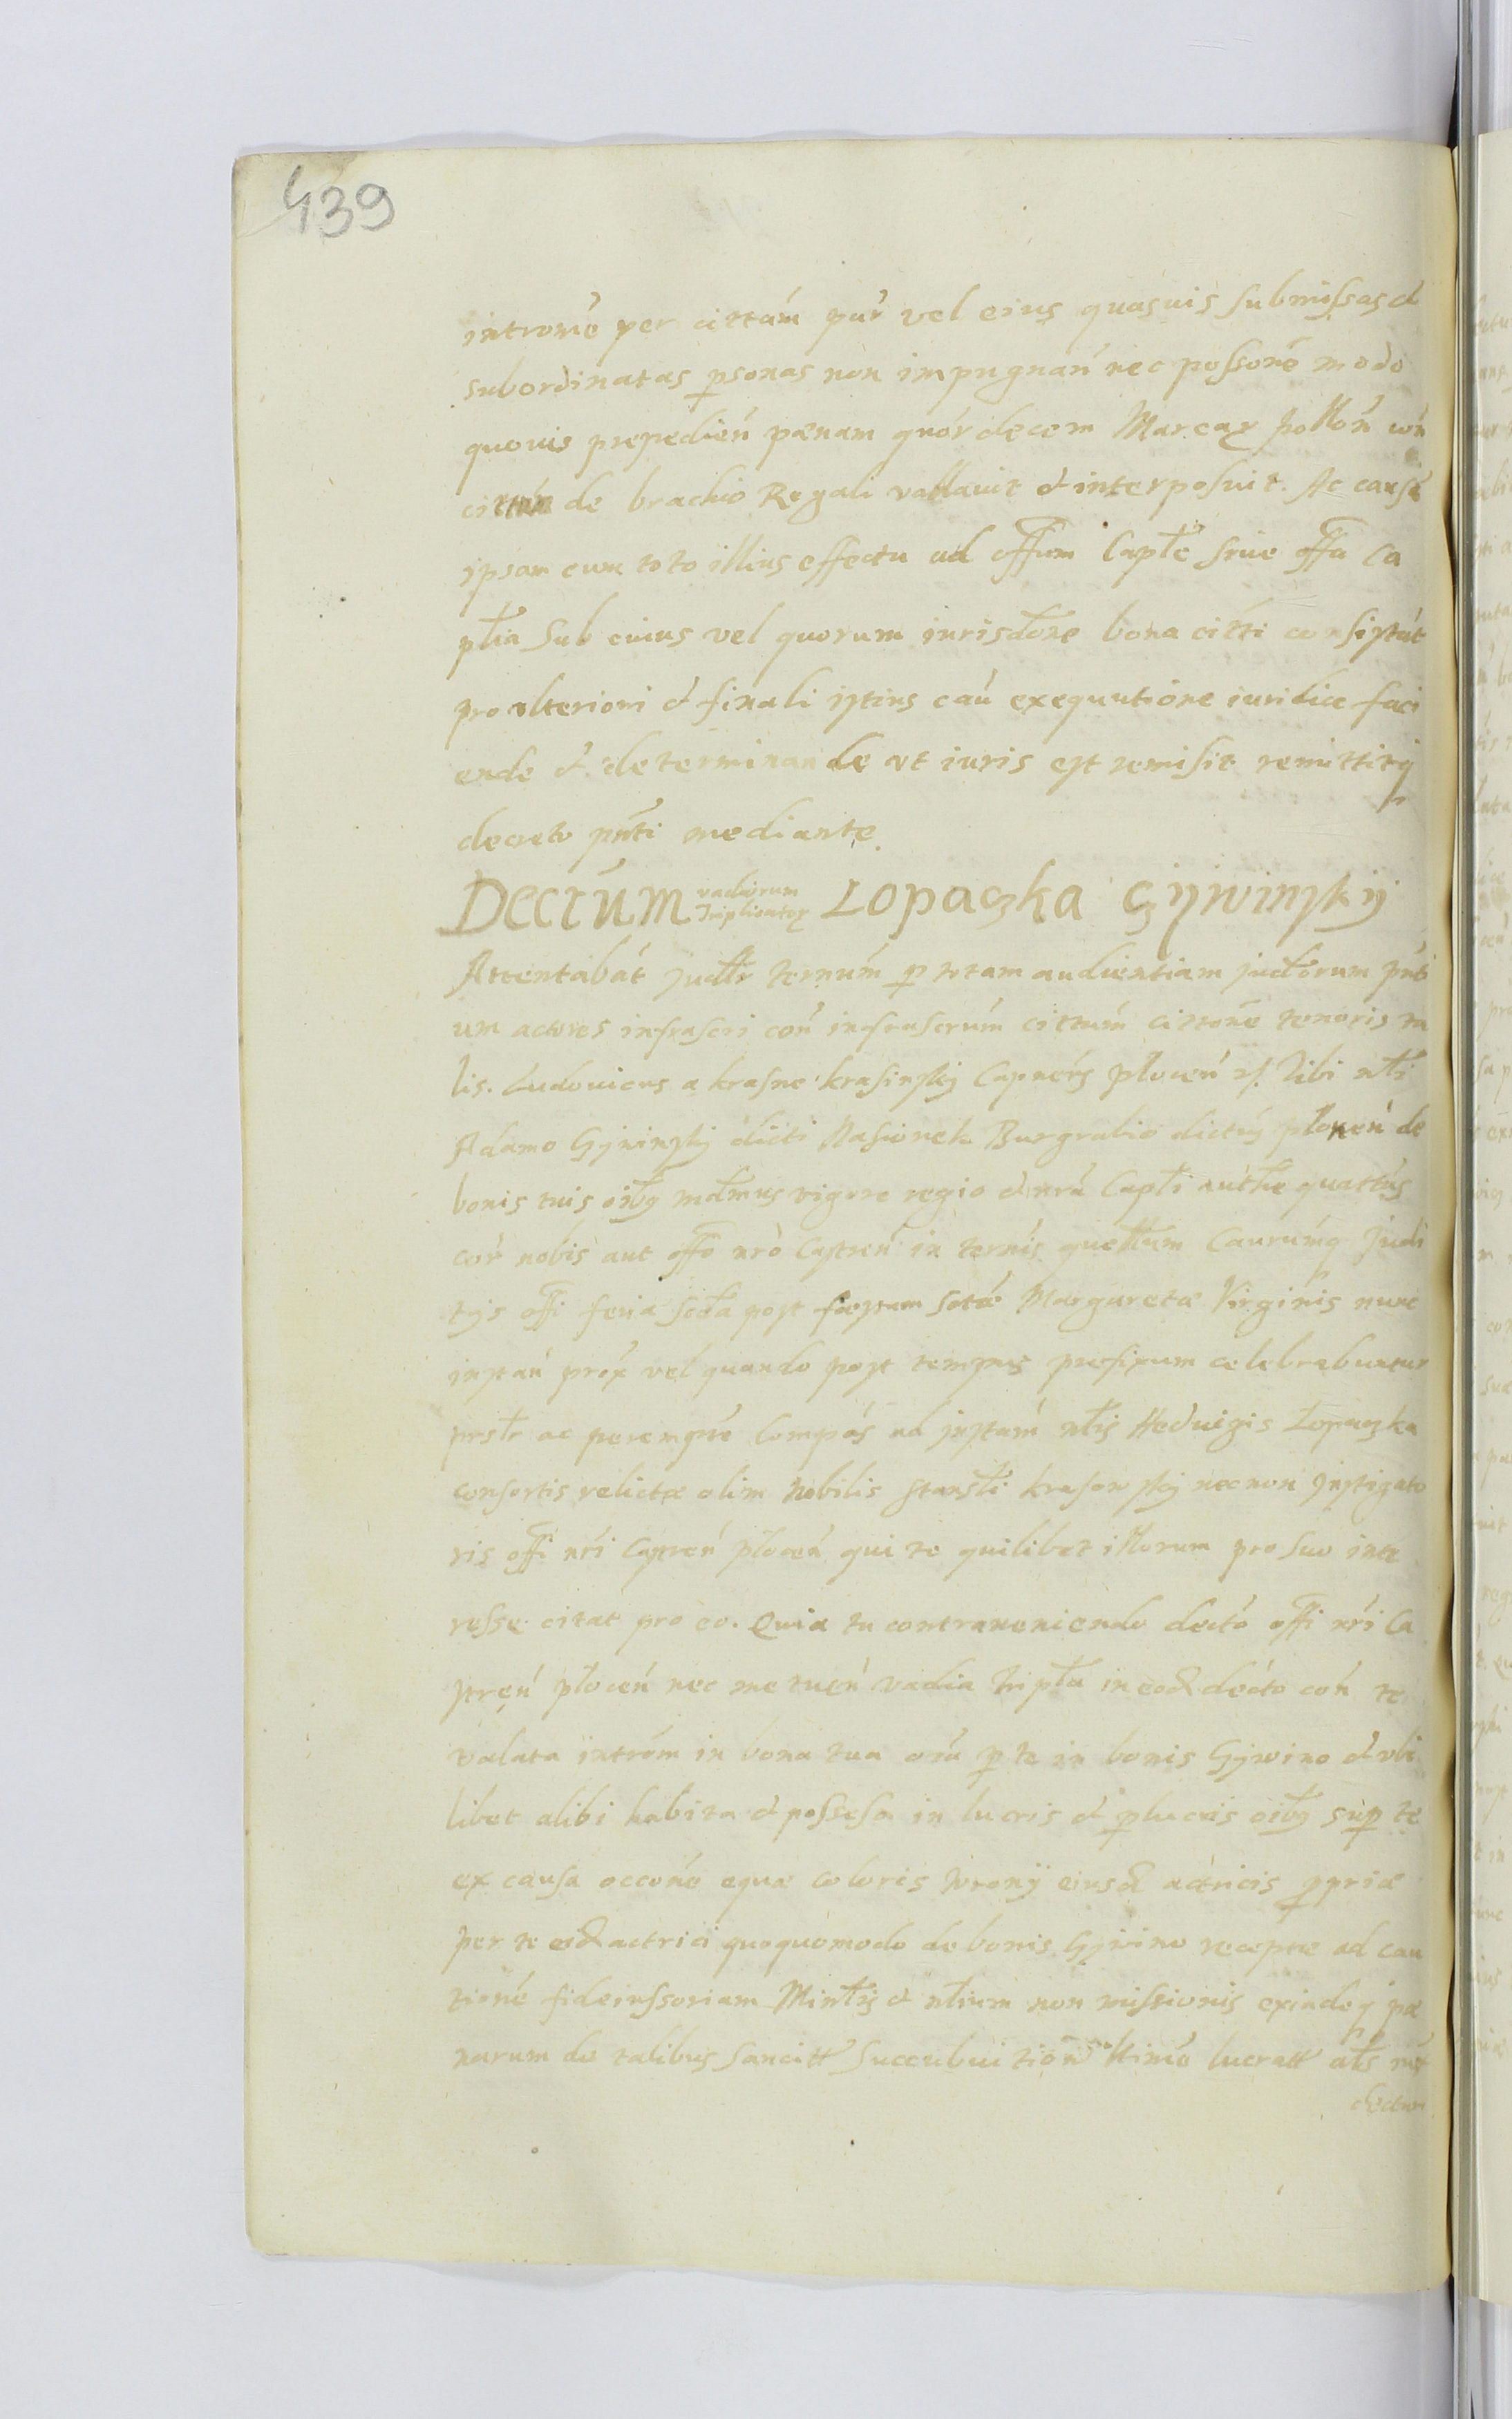 439
intromẽ per cittám pár vel eius quasuis submissas et
subordinatas psonas non impugnań nec possorẽ modo
quouis prepedień pænam quór decem Marcaꝝ polloń coń
cittúm de brachio Regali vallauit et interposuit. Ac causá
ipsam cum toto illius effectu ad offum Caplẽ siue offa Ca
plia sub cuius vel quorum iurisdone bona citti consistút
pro vlteriori et finali istius caú exequutione iuridice faci
ende et determinande vt iuris est remisit remittitq
decreto pnti mediante.
Decrúm vadiorum Triplicatoꝝ Lopaczka Czywinskij
Attentabát judlr ternúm p totam audientiam judiorum pnti
um actores infrascri coń infrascrúm cittúm cittonẽ tenoris ta
lis. Ludouicus a krasne krasinskij Capneús ploceń rc Tibi nli
Adamo Czywinskij dicti Nasionek Burgrabio dictús ploceń de
bonis tuis oibꝫ mdmus vigore regio et nrá Capli authe quattús
cor nobis aut offo nrò Castreń in ternís quellum Caurúmq Judi
tys offi feria scda post fæstum sctæ Margaretæ Virginis nunc
instań prox vel quando post tempus prefixum celebrabuntur
prslr ac peremptẽ Compás ad jnstám nlis Heduigis Lopaczka
consortis relictæ olim Nobilis Stansli krasowskij necnon Jnstigato
ris offi nri Castreń ploceń qui te quilibet illorum pro suo inte
resse citat pro eo. Quia tu contraueniendo decto offi nri Ca
streń ploceń nec metueń vadia tripla in eod decto coń te
valata intróm in bona tua oia p te in bonis Czywino et vbi
libet alibi habita et possessa in lucris et plucris oibꝫ sup te
ex causa occonẽ equæ coloris wronij eiusd actricis ppriæ
per te eid actrici quoquomodo de bonis Czywino receptæ ad cau
tionẽ fideiussoriam Minlis et nlium non missionis exindeq pæ
narum de talibus sancitt succubuition ltimẽ lucratt als
dectum